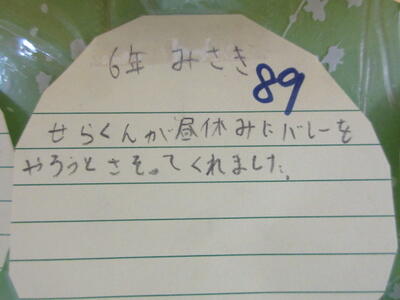 6年 みさき
89
せらくんが昼休みにバレーを
やろうとさそってくれました。